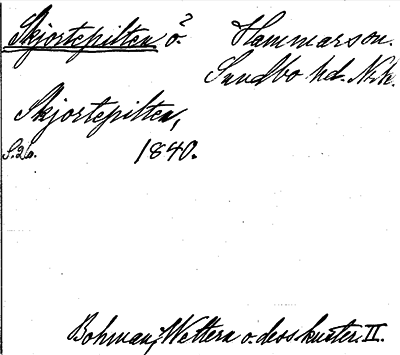 Skjortepilten ö.² Hammarson.
Sundbo hd. Nrk.
Skjortepilten,
S. 20. 1840.
Bohman, Wettern o. dess kuster. II.